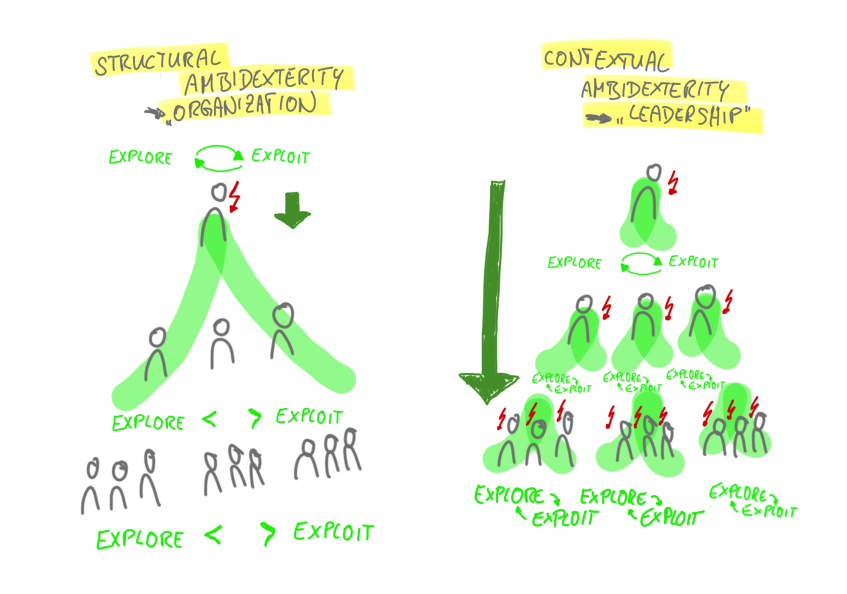 STRUCTURAL
AMBIDEXTERITY
→ „ORGANIZATION
EXPLORE EXPLOIT
EXPLORE < > EXPLOIT
EXPLORE < > EXPLOIT
CONTEXTUAL
AMBIDEXTERITY
→ „LEADERSHIP"
EXPLORE EXPLOIT
EXPLORE
EXPLOIT
EXPLORE
EXPLOIT
EXPLORE
EXPLOIT
EXPLORE
EXPLOIT
EXPLORE
EXPLOIT
EXPLORE
EXPLOIT